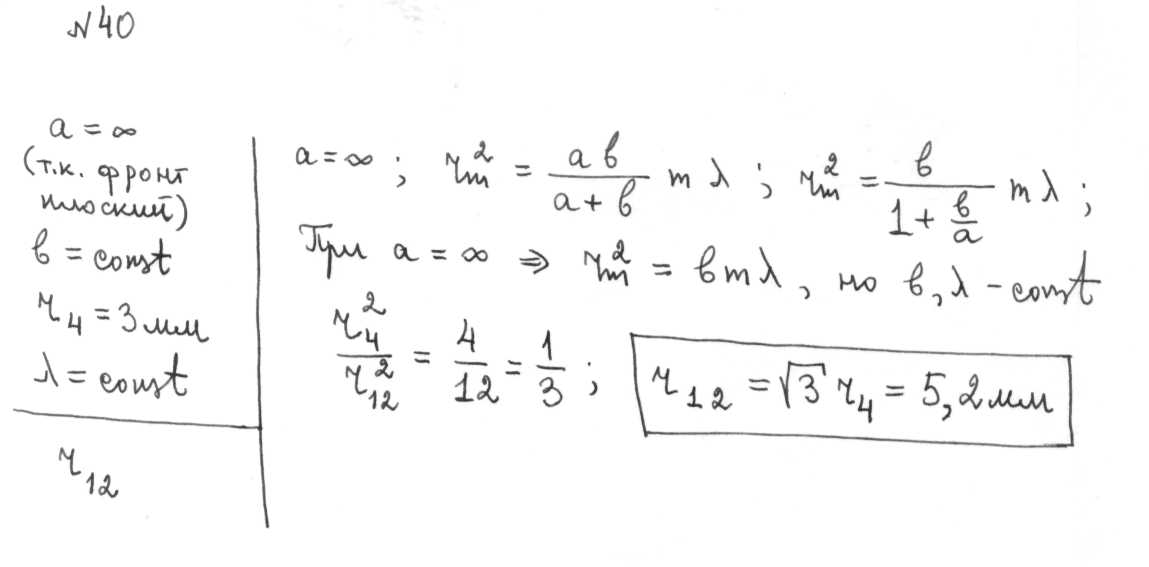 №40
a = ∞
(т.к. фронт
плоский)
b = const
r₄ = 3 мм
λ = const
r₁₂
a = ∞ ; rₘ² = ab/(a + b) m λ ; rₘ² = b/(1 + b/a) m λ ;
При a = ∞ ⇒ rₘ² = b m λ, но b, λ - const
r₄²/r₁₂² = 4/12 = 1/3 ; r₁₂ = √3 r₄ = 5,2 мм